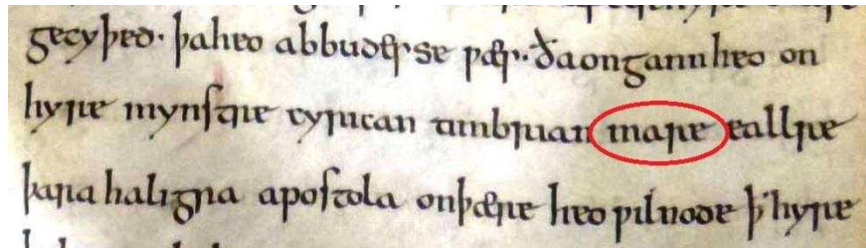 gecyþed· þaheo abbudęsse ƿæs·· ðaongann heo on
hyre mynstre cyrican timbrian inare eallre
þara haligra apostola onþære heo ƿilnode ꝥ hyre